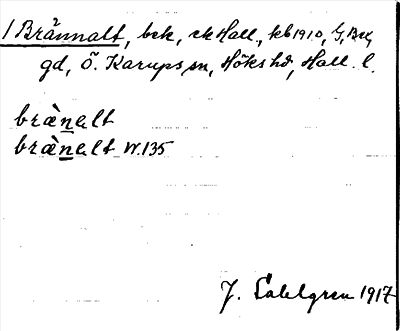 1 Brännalt, bek, ek Hall., kb 1910, G, Bex,
gd, Ö. Karups sn, Höks hd, Hall. l.
bræ̀nalt
bræ̀nalt W.135
J. Sahlgren 1917